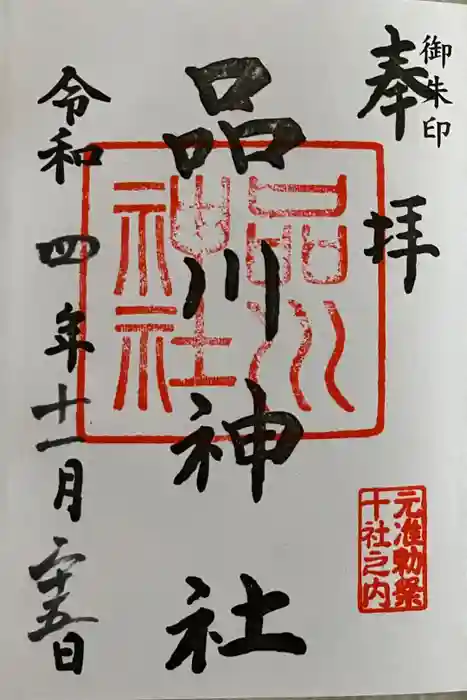 御朱印
奉拝
品川神社
品川
神社
元准勅祭
十社之内
令和四年十一月二十五日